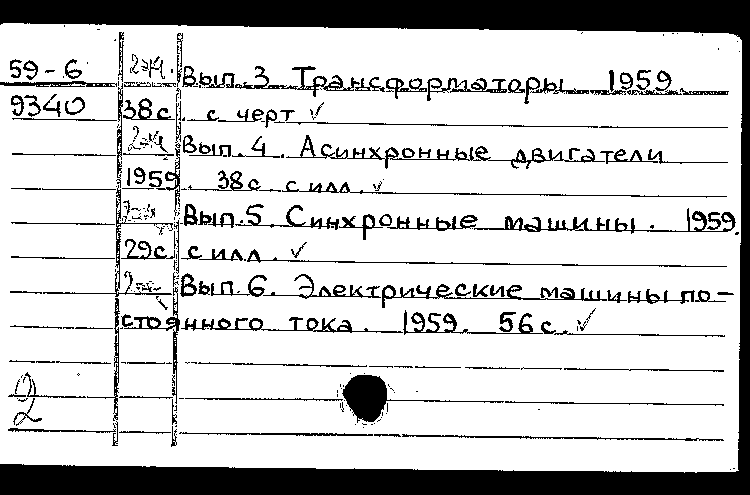 59-6 2эк. Вып. 3 Трансформаторы 1959.
9340 38с. с черт. ✓
2эк Вып. 4. Асинхронные двигатели
1959. 38с. с илл. ✓
Вып. 5. Синхронные машины. 1959.
29с. с илл. ✓
Вып. 6. Электрические машины по-
стоянного тока. 1959. 56с. ✓
2